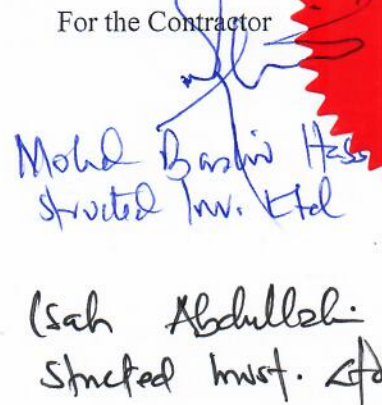 For the Contractor
Mohd Bashir Hass
structed Inv. Ltd
Isah Abdullahi
Structed Invst. Ltd